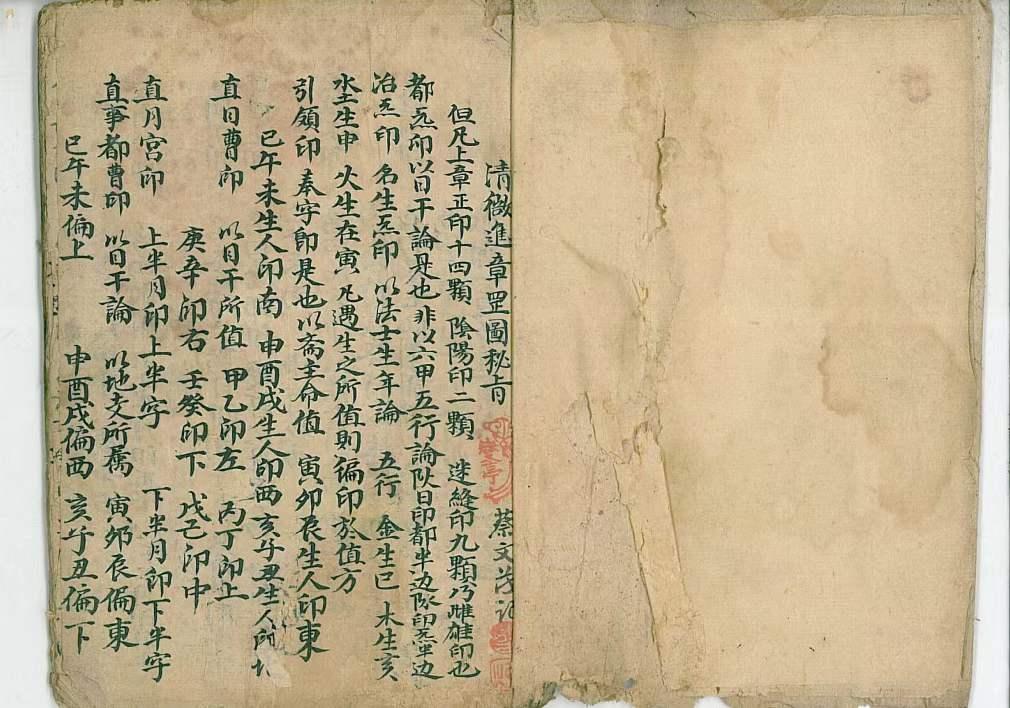 清微進章罡圖秘旨 蔡文茂記
但凡上章正印十四顆 陰陽印二顆 迷縫印九顆乃雌雄印也
都炁印以日干論是也 非以六甲五行論 陰日印都半边陽印炁半边
治炁印 名生炁印 以法士生年論 五行 金生巳 木生亥
水土生申 火生在寅 凡遇生之所值則徧印於值方
引領印 奉字印是也 以斋主命值 寅卯辰生人印東
巳午未生人印南 申酉戌生人印西 亥子丑生人所
直日曹印 以日干所值 甲乙印左 丙丁印上
庚辛印右 壬癸印下 戊己印中
直月宫印 上半月印上半字 下半月印下半字
直事都曹印 以日干論 以地支所属 寅卯辰偏東
巳午未偏上 申酉戌偏西 亥子丑偏下